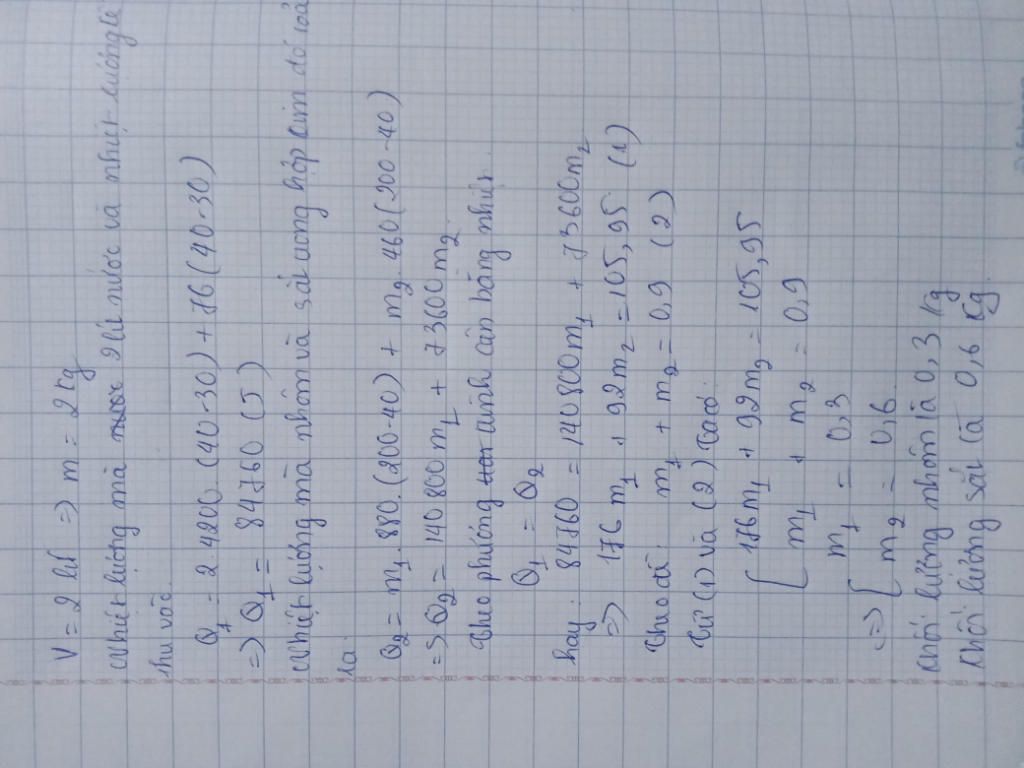 V = 2 lít => m = 2 kg
Nhiệt lượng mà 2 lít nước và nhiệt lượng kế
thu vào.
Q₁ = 2.4200.(40-30) + 76(40-30)
=> Q₁ = 84760 (J)
Nhiệt lượng mà nhôm và sắt trong hợp kim đó toả
ra.
Q₂ = m₁.880.(200-40) + m₂.460(200-40)
=> Q₂ = 140800m₁ + 73600m₂
Theo phương trình cân bằng nhiệt.
Q₁ = Q₂
hay: 84760 = 140800m₁ + 73600m₂
=> 176m₁ + 92m₂ = 105,95 (1)
Theo đề: m₁ + m₂ = 0,9 (2)
Từ (1) và (2) ta có:
176m₁ + 92m₂ = 105,95
m₁ + m₂ = 0,9
m₁ = 0,3
<=> m₂ = 0,6
Khối lượng nhôm là 0,3 kg
Khối lượng sắt là 0,6 kg.